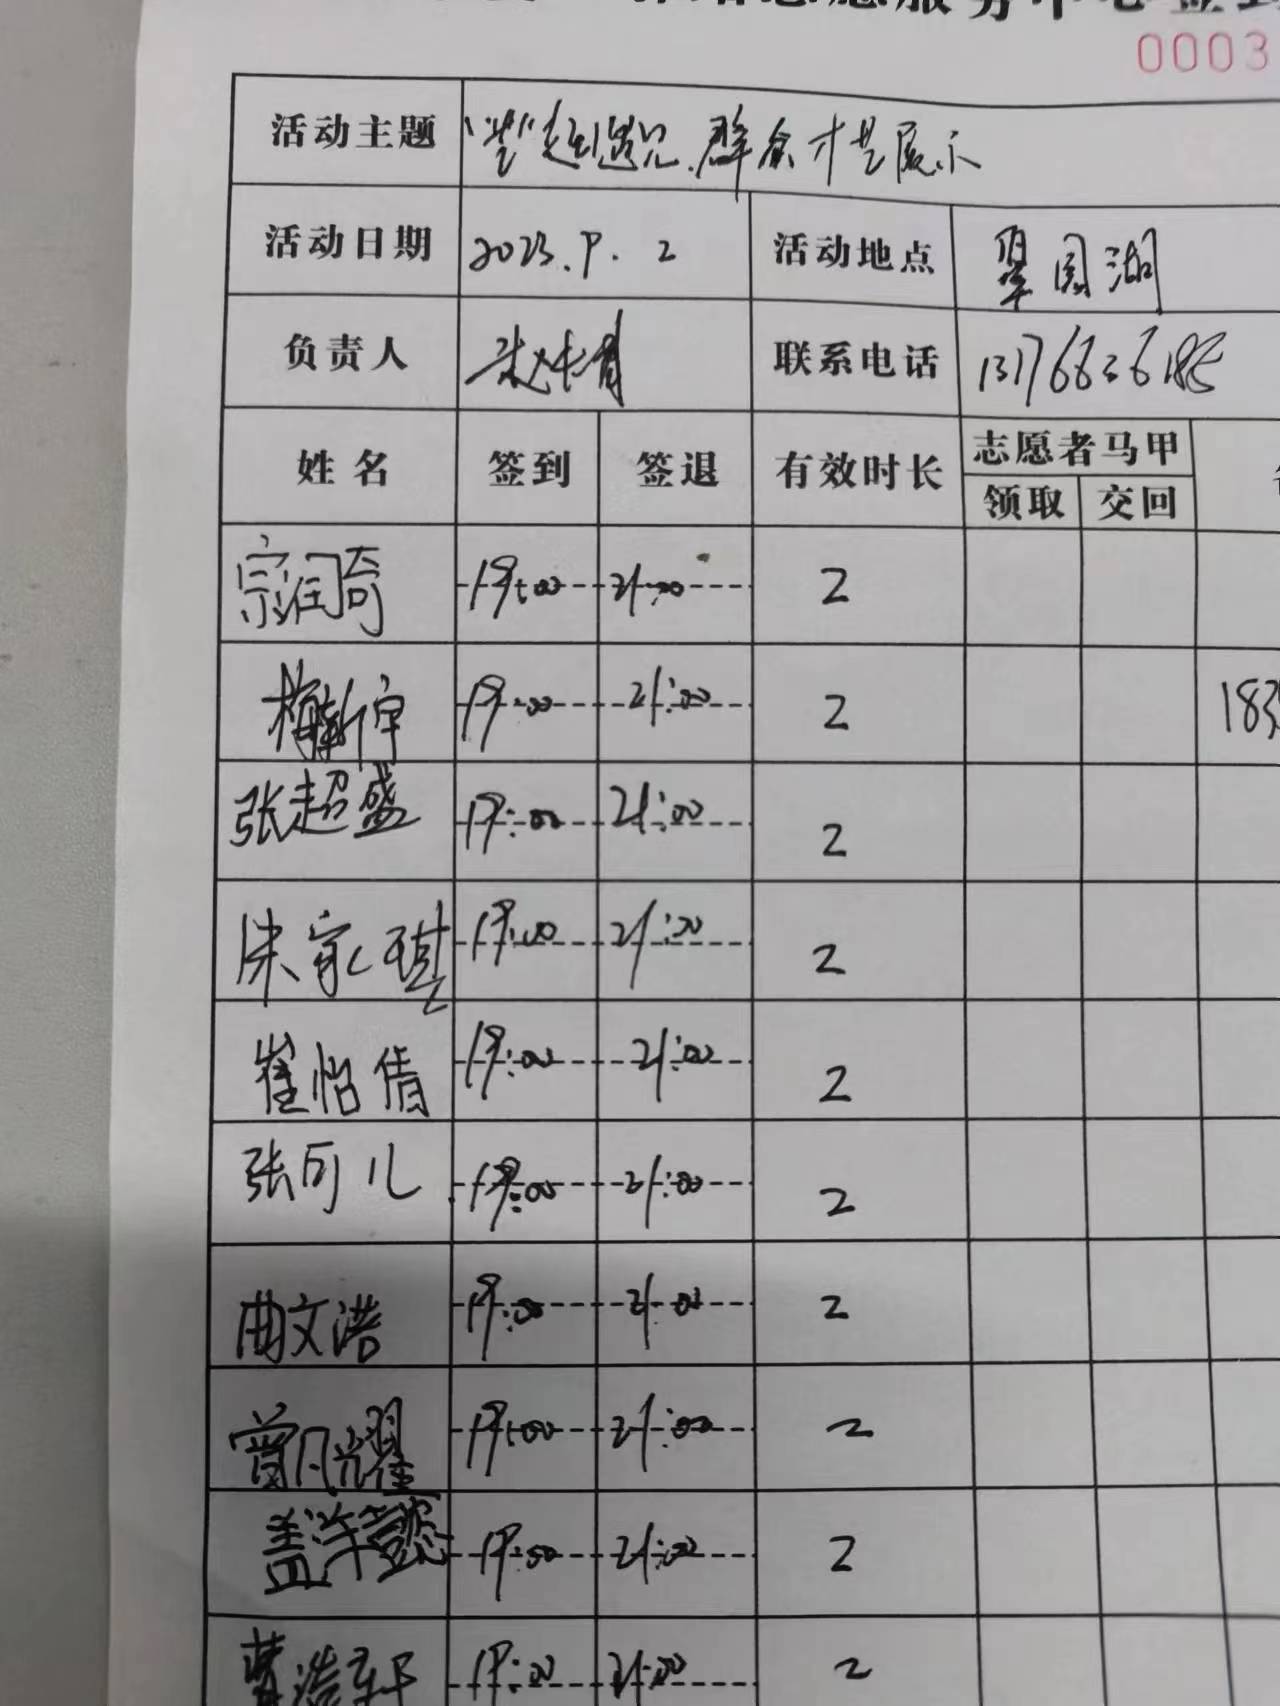 志愿服务中心签到
0003
活动主题 群众才艺展示
活动日期 2023.9.2 活动地点 翠园湖
负责人 联系电话
姓名 签到 签退 有效时长 志愿者马甲
领取 交回
宗润奇 19:00 21:00 2
梅新宇 19:00 21:00 2 183
张超盛 19:00 21:00 2
宋家琪 19:00 21:00 2
崔怡倩 19:00 21:00 2
张可儿 19:00 21:00 2
曲文浩 19:00 21:00 2
曾凡耀 19:00 21:00 2
19:00 21:00 2
浩轩 19:00 21:00 2